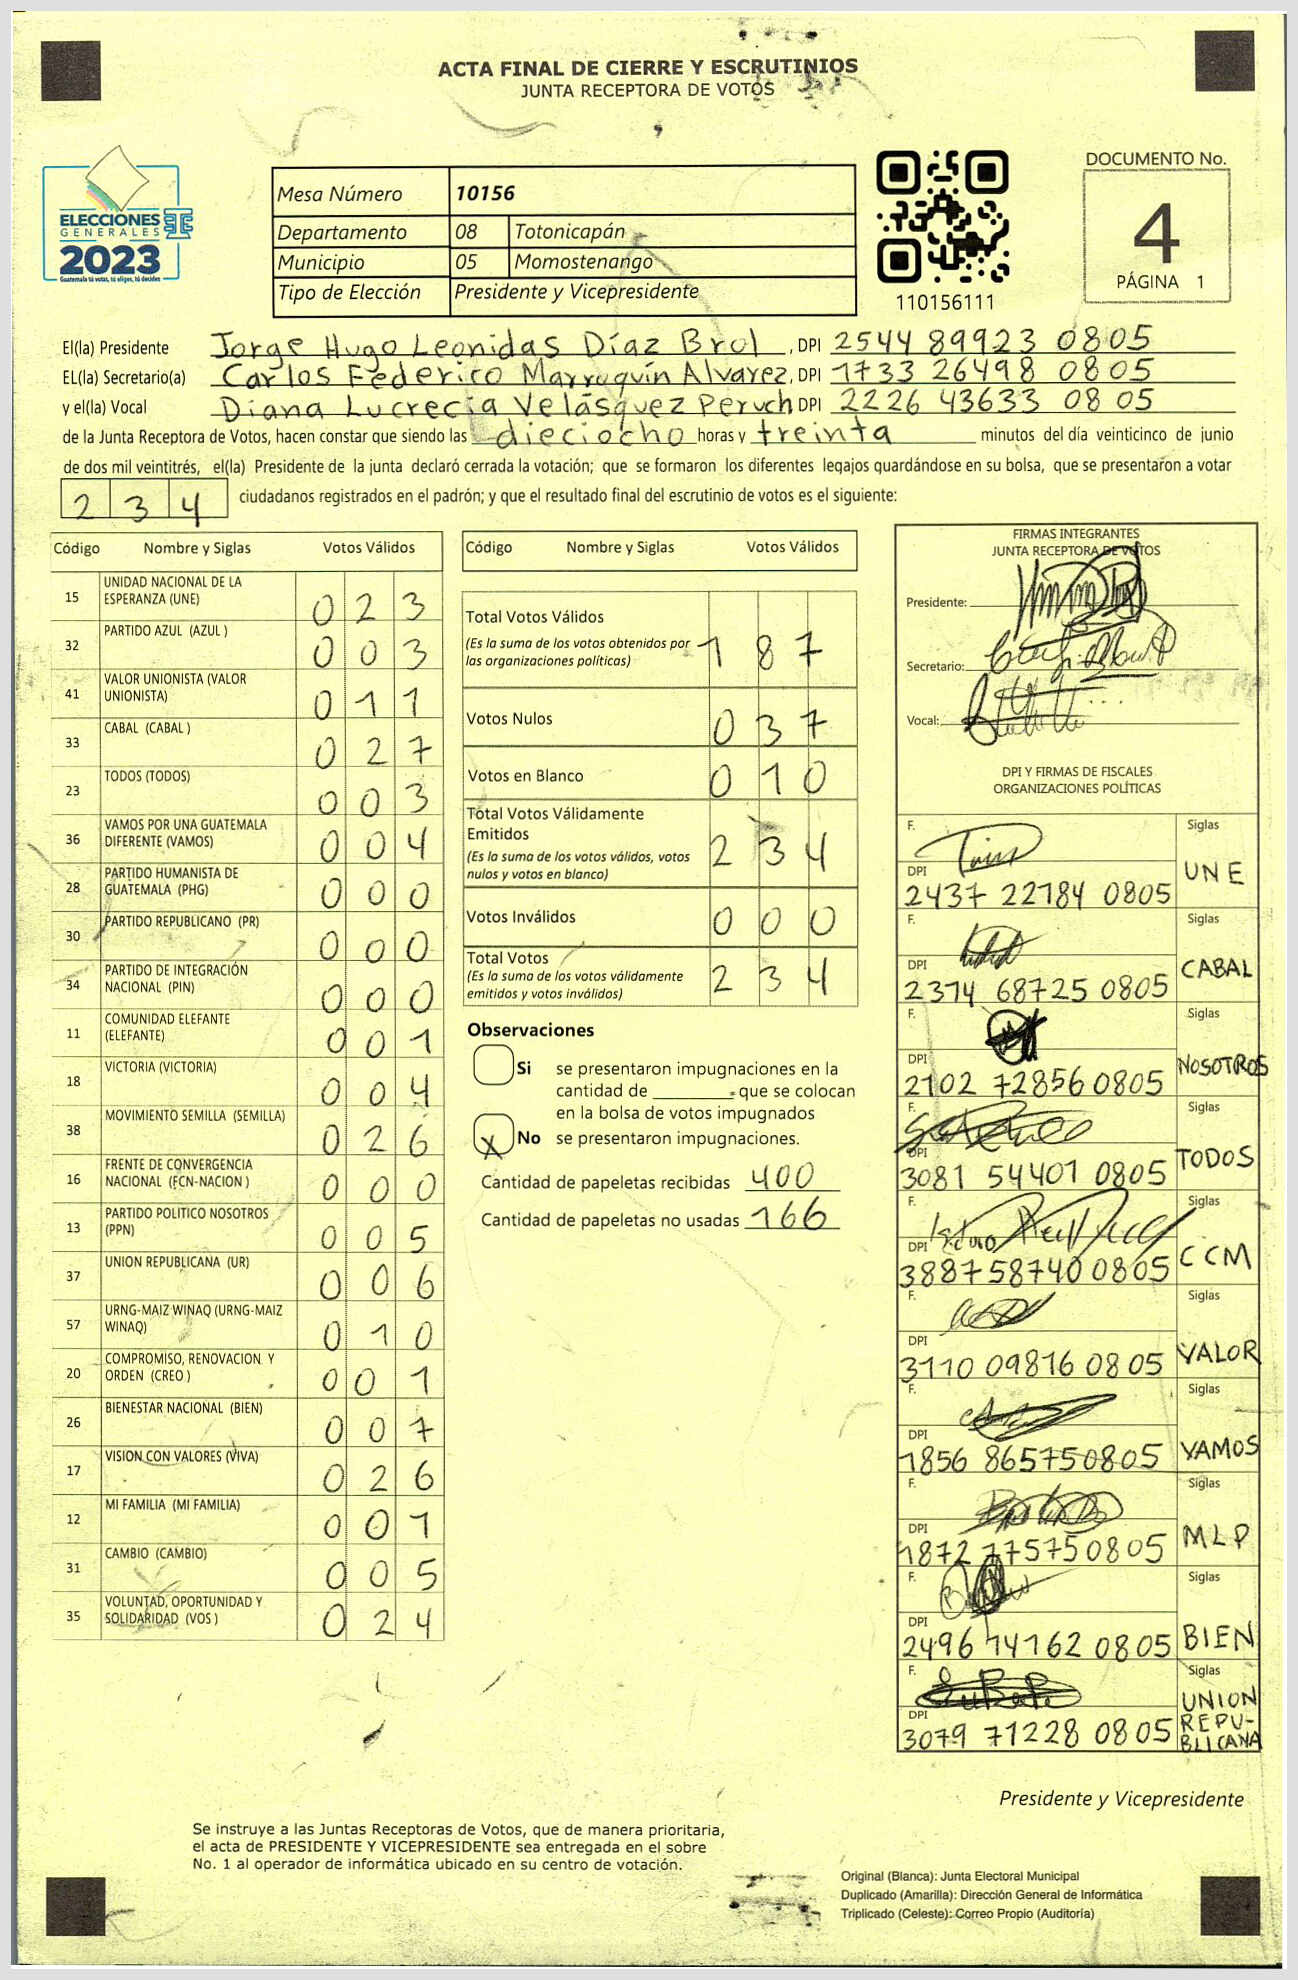 ACTA FINAL DE CIERRE Y ESCRUTINIOS
JUNTA RECEPTORA DE VOTOS
ELECCIONES
GENERALES
2023
Guatemala tú votas, tú eliges, tú decides
Mesa Número 10156
Departamento 08 Totonicapán
Municipio 05 Momostenango
Tipo de Elección Presidente y Vicepresidente
110156111
DOCUMENTO No.
4
PÁGINA 1
El(la) Presidente Jorge Hugo Leonidas Díaz Brol, DPI 2544 89923 0805
EL(la) Secretario(a) Carlos Federico Marroquín Alvarez, DPI 1733 26498 0805
y el(la) Vocal Diana Lucrecia Velásquez Peruch DPI 2226 43633 0805
de la Junta Receptora de Votos, hacen constar que siendo las dieciocho horas y treinta minutos del día veinticinco de junio
de dos mil veintitrés, el(la) Presidente de la junta declaró cerrada la votación; que se formaron los diferentes legajos guardándose en su bolsa, que se presentaron a votar
234 ciudadanos registrados en el padrón; y que el resultado final del escrutinio de votos es el siguiente:
Código Nombre y Siglas Votos Válidos
15 UNIDAD NACIONAL DE LA ESPERANZA (UNE) 023
32 PARTIDO AZUL (AZUL ) 003
41 VALOR UNIONISTA (VALOR UNIONISTA) 011
33 CABAL (CABAL ) 027
23 TODOS (TODOS) 003
36 VAMOS POR UNA GUATEMALA DIFERENTE (VAMOS) 004
28 PARTIDO HUMANISTA DE GUATEMALA (PHG) 000
30 PARTIDO REPUBLICANO (PR) 000
34 PARTIDO DE INTEGRACIÓN NACIONAL (PIN) 000
11 COMUNIDAD ELEFANTE (ELEFANTE) 001
18 VICTORIA (VICTORIA) 004
38 MOVIMIENTO SEMILLA (SEMILLA) 026
16 FRENTE DE CONVERGENCIA NACIONAL (FCN-NACION ) 000
13 PARTIDO POLITICO NOSOTROS (PPN) 005
37 UNION REPUBLICANA (UR) 006
57 URNG-MAIZ WINAQ (URNG-MAIZ WINAQ) 010
20 COMPROMISO, RENOVACION Y ORDEN (CREO ) 001
26 BIENESTAR NACIONAL (BIEN) 007
17 VISION CON VALORES (VIVA) 026
12 MI FAMILIA (MI FAMILIA) 001
31 CAMBIO (CAMBIO) 005
35 VOLUNTAD, OPORTUNIDAD Y SOLIDARIDAD (VOS ) 024
Código Nombre y Siglas Votos Válidos
Total Votos Válidos
(Es la suma de los votos obtenidos por las organizaciones políticas) 187
Votos Nulos 037
Votos en Blanco 010
Total Votos Válidamente Emitidos
(Es la suma de los votos válidos, votos nulos y votos en blanco) 234
Votos Inválidos 000
Total Votos
(Es la suma de los votos válidamente emitidos y votos inválidos) 234
Observaciones
Si se presentaron impugnaciones en la
cantidad de ________ que se colocan
en la bolsa de votos impugnados
X No se presentaron impugnaciones.
Cantidad de papeletas recibidas 400
Cantidad de papeletas no usadas 166
FIRMAS INTEGRANTES
JUNTA RECEPTORA DE VOTOS
Presidente:
Secretario:
Vocal:
DPI Y FIRMAS DE FISCALES
ORGANIZACIONES POLÍTICAS
F. Siglas
DPI 2437 22784 0805 UNE
F. Siglas
DPI 2374 68725 0805 CABAL
F. Siglas
DPI 2102 72856 0805 NOSOTROS
F. Siglas
DPI 3081 54401 0805 TODOS
F. Siglas
DPI 3887 58740 0805 CCM
F. Siglas
DPI 3110 09816 0805 VALOR
F. Siglas
DPI 1856 86575 0805 VAMOS
F. Siglas
DPI 1872 77575 0805 MLP
F. Siglas
DPI 2496 14162 0805 BIEN
F. Siglas
DPI 3079 71228 0805 UNION REPU-BLICANA
Presidente y Vicepresidente
Se instruye a las Juntas Receptoras de Votos, que de manera prioritaria,
el acta de PRESIDENTE Y VICEPRESIDENTE sea entregada en el sobre
No. 1 al operador de informática ubicado en su centro de votación.
Original (Blanca): Junta Electoral Municipal
Duplicado (Amarilla): Dirección General de Informática
Triplicado (Celeste): Correo Propio (Auditoría)